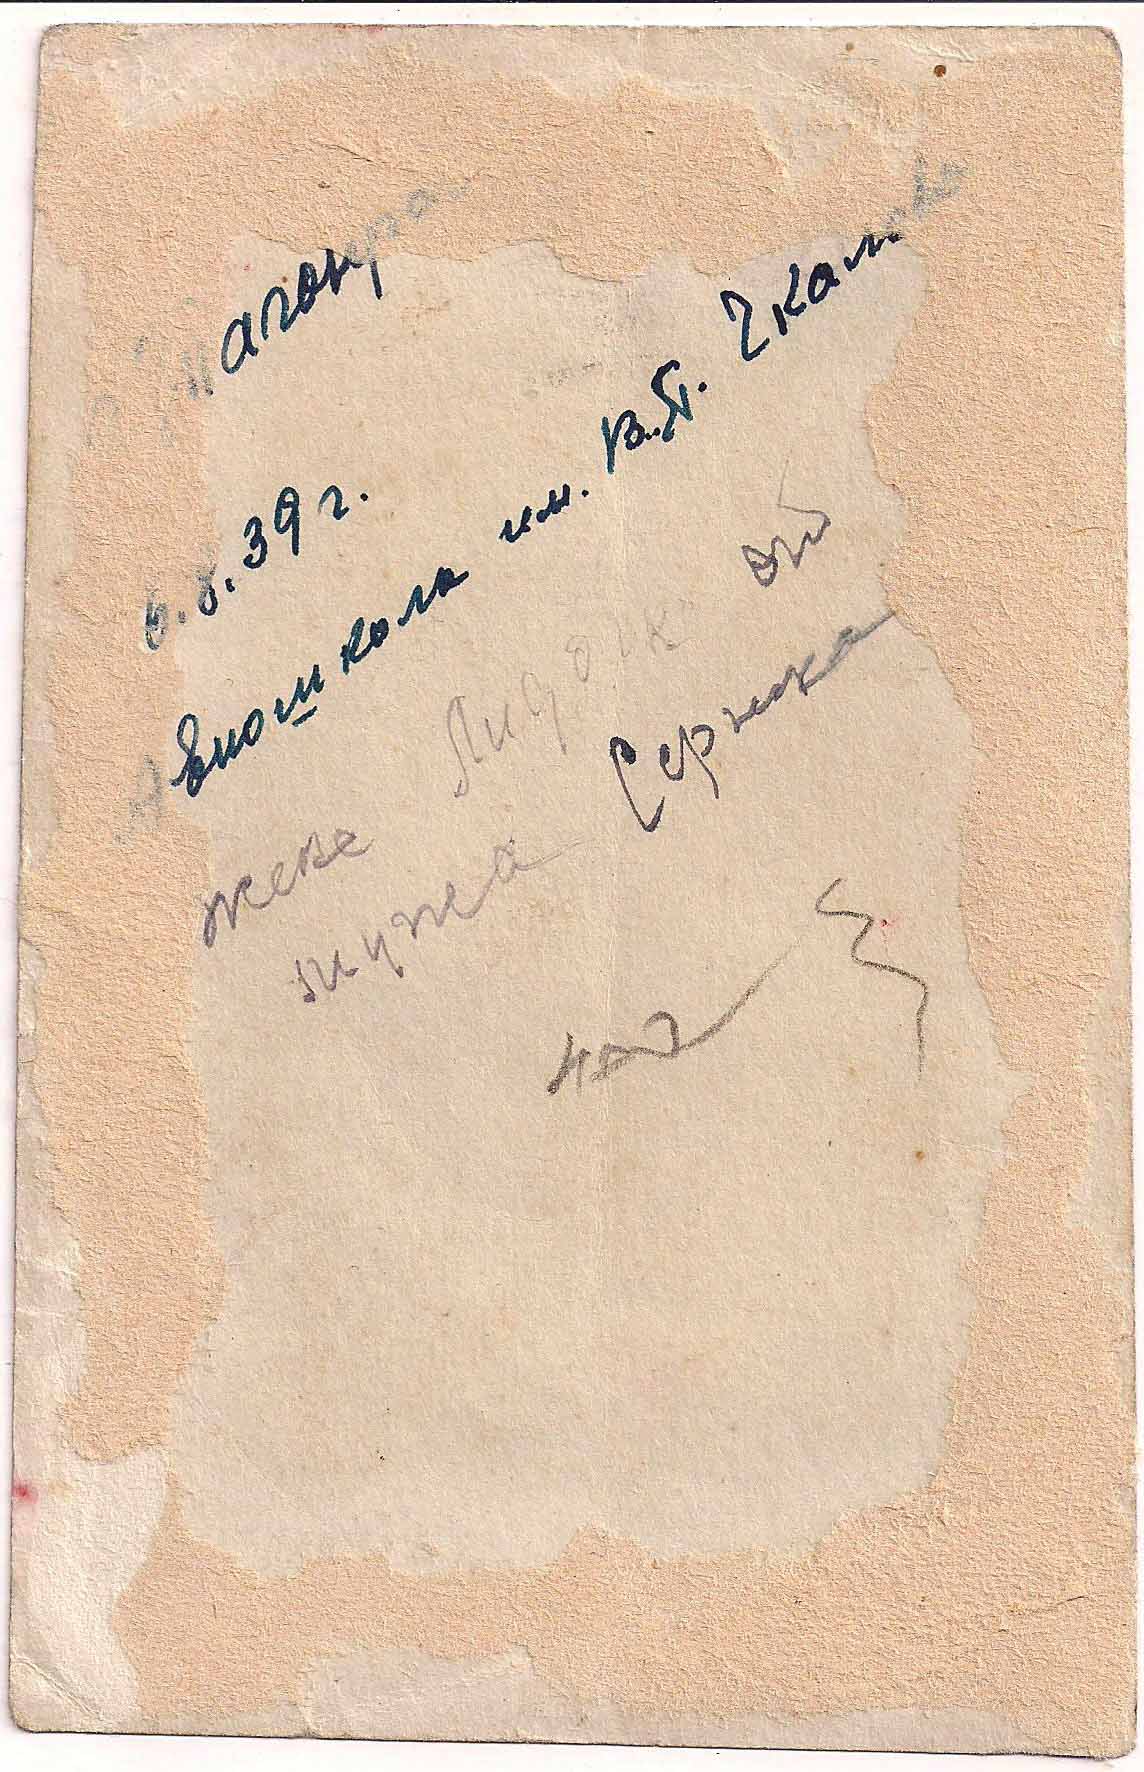 6.8.39 г.
Авиошкола им. В.П. Чкалова
жене Лидочк от
мужа Сержика